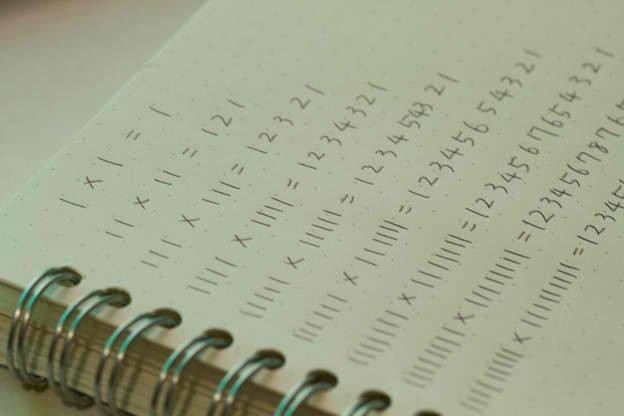 1 × 1 = 1
11 × 11 = 121
111 × 111 = 12321
1111 × 1111 = 1234321
11111 × 11111 = 123454321
111111 × 111111 = 12345654321
1111111 × 1111111 = 1234567654321
11111111 × 11111111 = 1234567876
111111111 × 111111111 = 12345